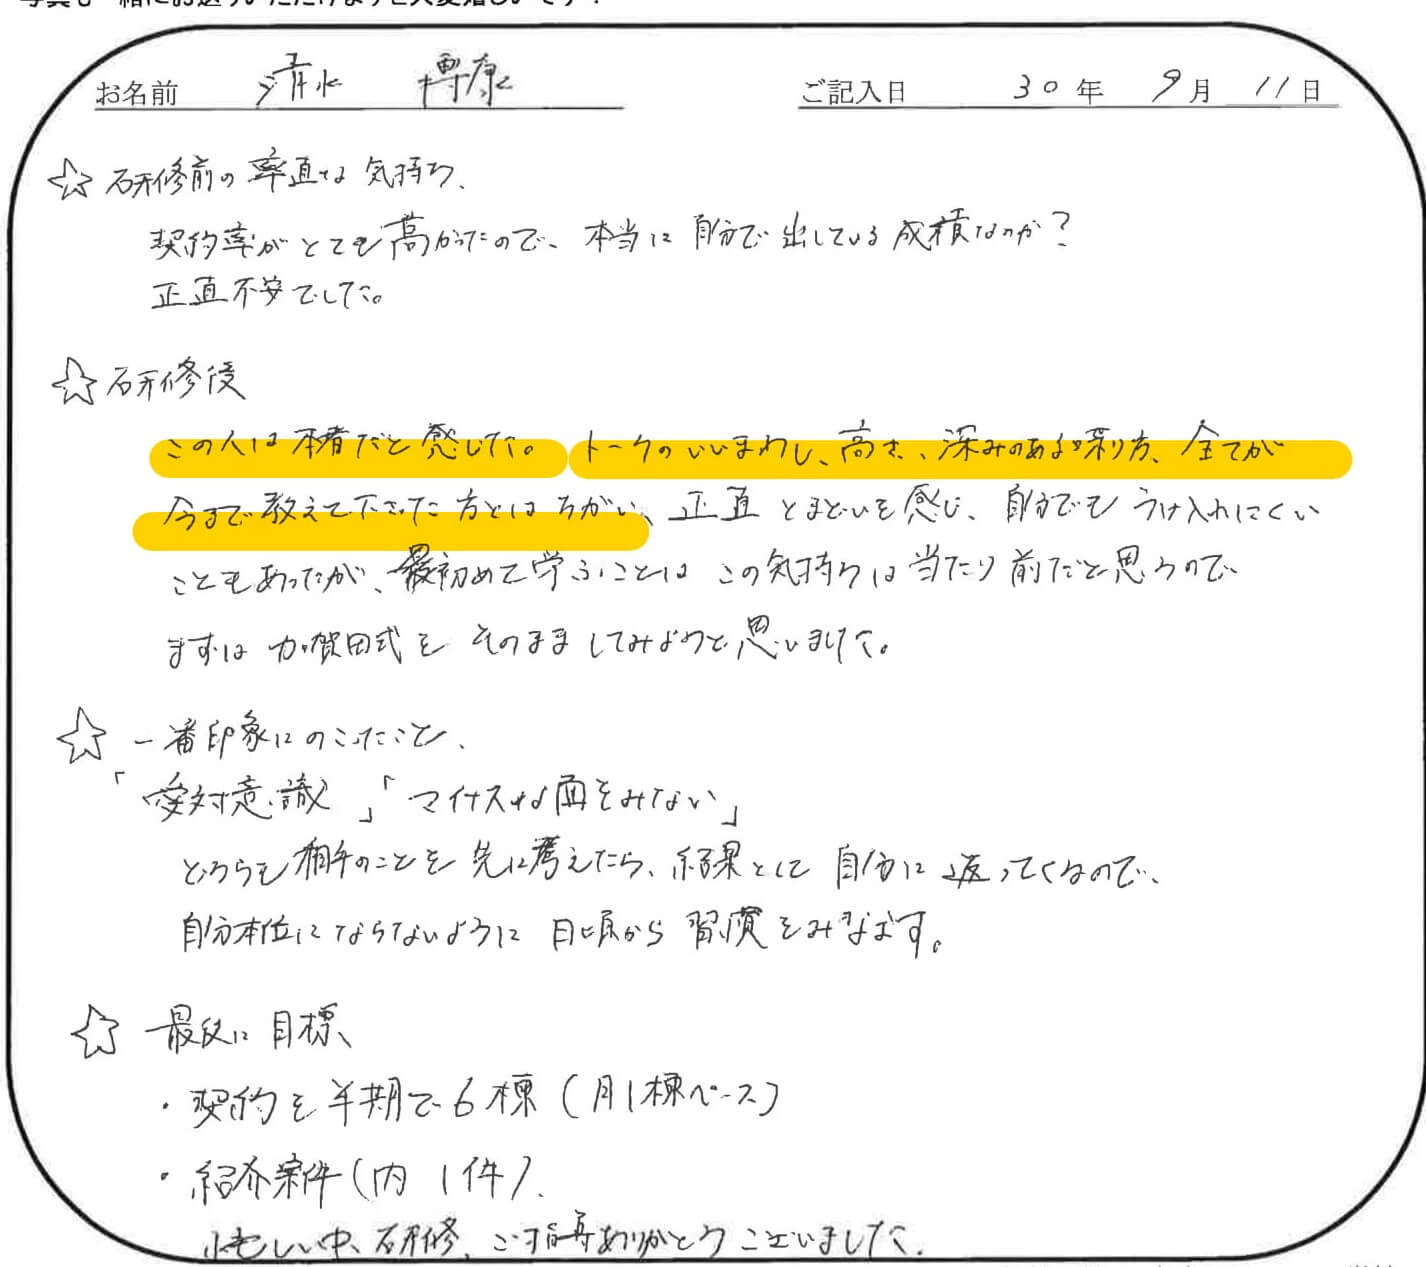 お名前 清水 博康 ご記入日 30年 9月 11日
☆研修前の率直な気持ち、
契約率がとても高かったので、本当に自分で出している成績なのか?
正直不安でした。
☆研修後
この人は本者だと感じた。トークのいいまわし、高さ、深みのある喋り方、全てが
今まで教えて下さった方とはちがい、正直とまどいを感じ、自分でもうけ入れにくい
こともあったが、最初めて学ぶことはこの気持ちは当たり前だと思うので
まずは加賀田式をそのまましてみようと思いました。
☆一番印象にのこったこと、
「愛対意識」「マイナスな面をみない」
どちらも相手のことを先に考えたら、結果として自分に返ってくるので、
自分本位にならないように日頃から習慣をみなおす。
☆最後に目標、
・契約を半期で6棟(月1棟ペース)
・紹介案件(内1件).
忙しい中、研修、ご指導ありがとうございました.